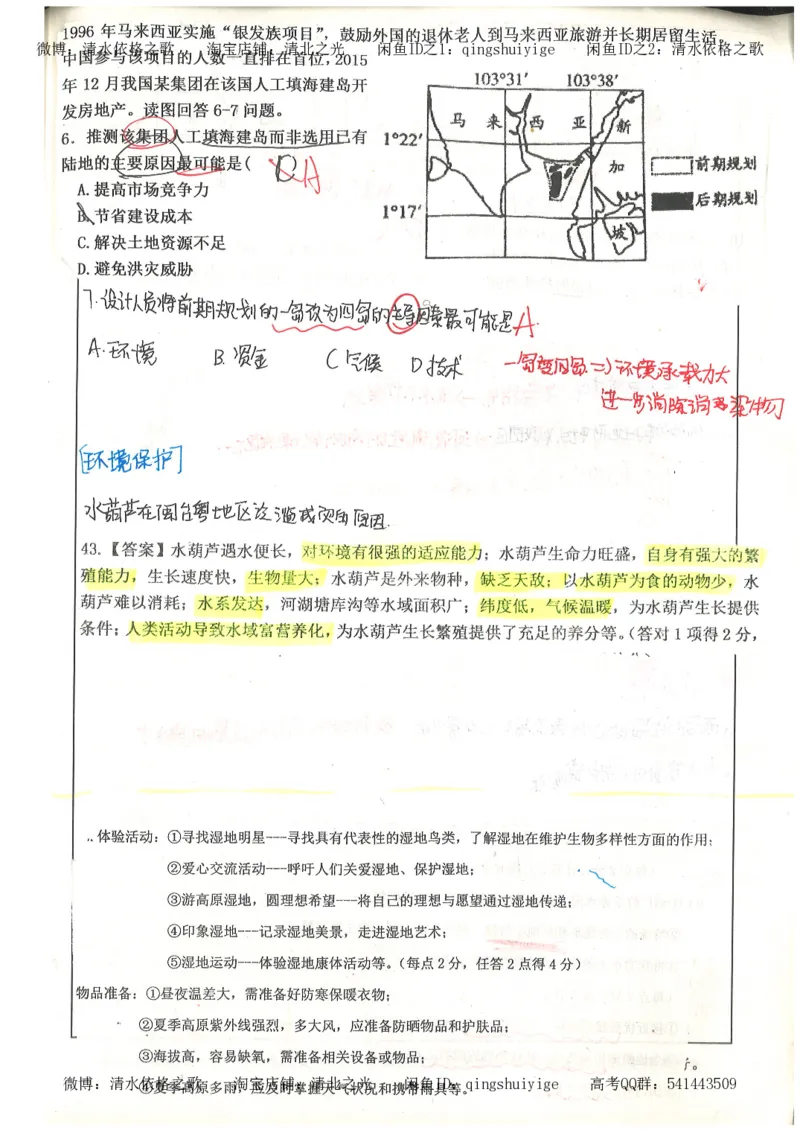 1996 年马来西亚实施“银发族项目”，鼓励外国的退休老人到马来西亚旅游并长期居留生活。
微博：清水依格之歌 淘宝店铺：清北之光 闲鱼ID之1：qingshuiyige 闲鱼ID之2：清水依格之歌
中国参与该项目的人数一直排在首位，2015
年 12 月我国某集团在该国人工填海建岛开
发房地产。读图回答 6-7 问题。
6．推测该集团人工填海建岛而非选用已有
陆地的主要原因最可能是( D ) A
A.提高市场竞争力
B.节省建设成本
C.解决土地资源不足
D.避免洪灾威胁
103°31′ 103°38′
马 来 西 亚 新
1°22′
加
前期规划
后期规划
1°17′
坡
7.设计人员将前期规划的一岛改为四岛的主导因素最可能是A.
A.环境 B.资金 C气候 D技术
一岛变四岛=>环境承载力大
进一步消除污染物
[环境保护]
水葫芦在闽台粤地区泛滥成灾的原因.
43.【答案】水葫芦遇水便长，对环境有很强的适应能力；水葫芦生命力旺盛，自身有强大的繁
殖能力，生长速度快，生物量大；水葫芦是外来物种，缺乏天敌；以水葫芦为食的动物少，水
葫芦难以消耗；水系发达，河湖塘库沟等水域面积广；纬度低，气候温暖，为水葫芦生长提供
条件；人类活动导致水域富营养化，为水葫芦生长繁殖提供了充足的养分等。（答对 1 项得 2 分，
体验活动：①寻找湿地明星---寻找具有代表性的湿地鸟类，了解湿地在维护生物多样性方面的作用；
②爱心交流活动---呼吁人们关爱湿地、保护湿地；
③游高原湿地，圆理想希望---将自己的理想与愿望通过湿地传递；
④印象湿地---记录湿地美景，走进湿地艺术；
⑤湿地运动---体验湿地康体活动等。（每点 2 分，任答 2 点得 4 分）
物品准备：①昼夜温差大，需准备好防寒保暖衣物；
②夏季高原紫外线强烈，多大风，应准备防晒物品和护肤品；
③海拔高，容易缺氧，需准备相关设备或物品；
微博：清水依格之歌 淘宝店铺：清北之光 闲鱼ID：qingshuiyige 高考QQ群：541443509
④夏季高原多雨，应及时掌握天气状况和携带雨具等。